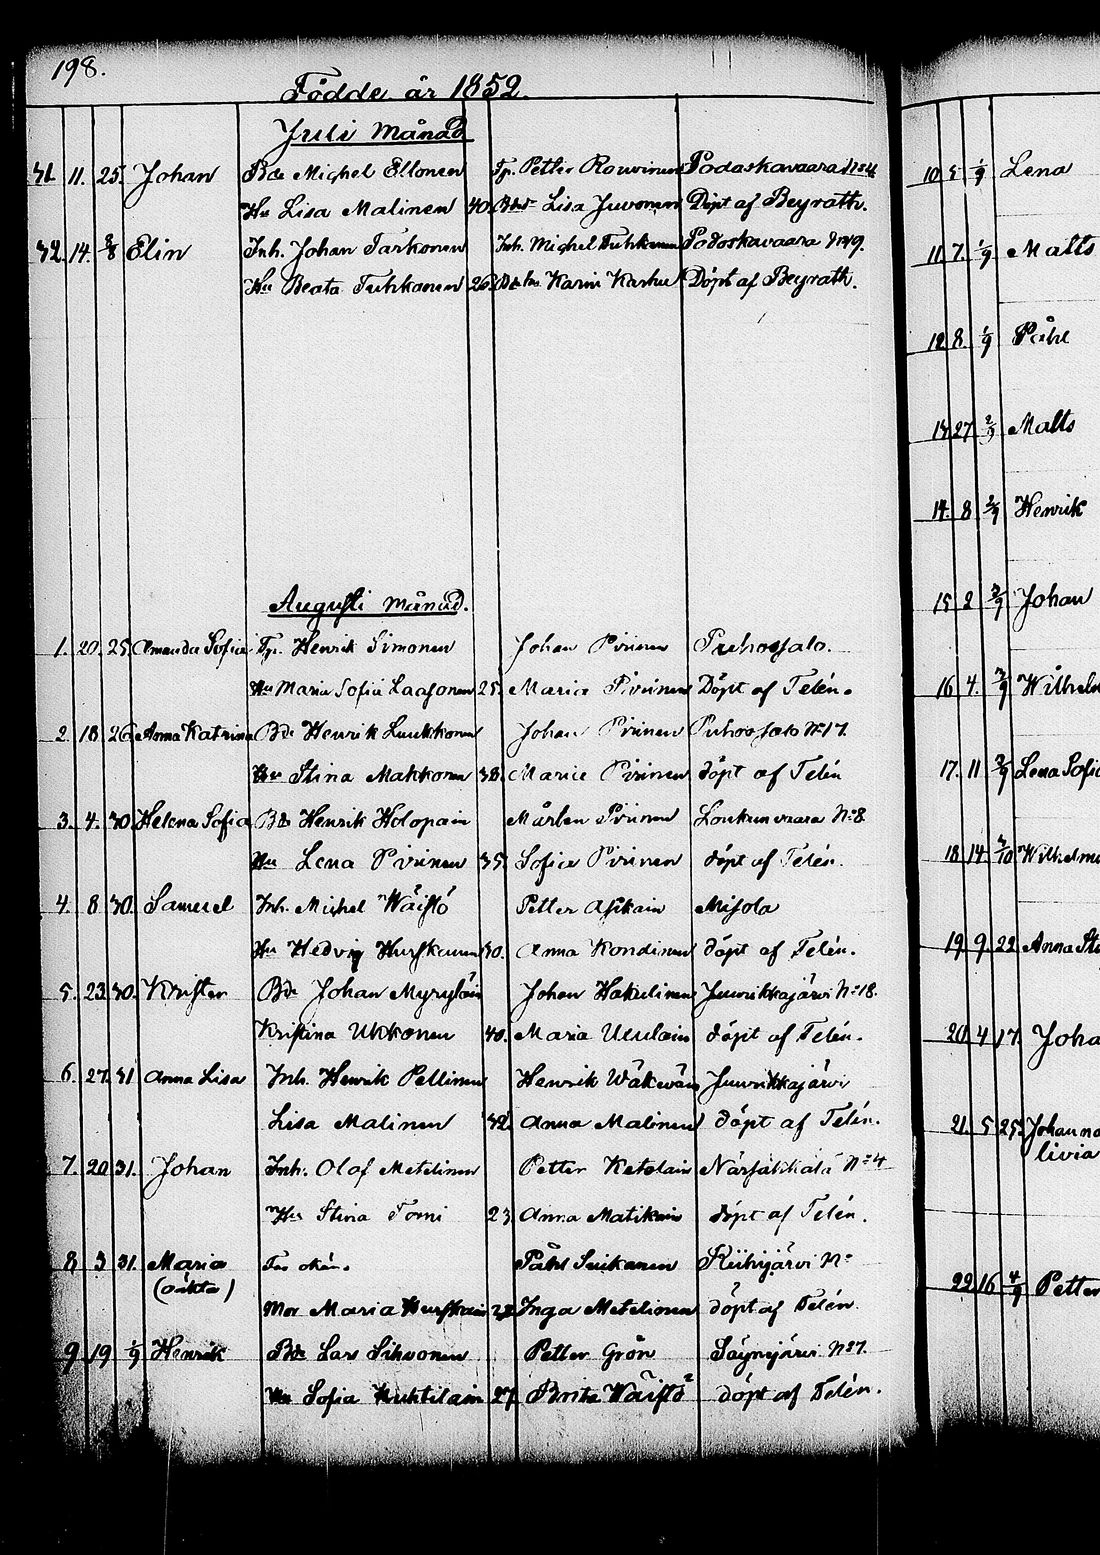 198.
Födde år 1852.
Juli Månad
31. 11. 25. Johan Bde Michel Eltonen Tp. Petter Rouvinen Podoskavaara No 4
Hu Lisa Malinen 40. Lisa Juvonen Döpt af Beyrath.
32. 14. 2/8 Elin Inh. Johan Tarkonen Inh. Michel Tuhkanen Podoskavaara No 19.
Hu Beata Tuhkanen 26. Karin Karhu Döpt af Beyrath.
Augusti Månad.
1. 20. 25. Amanda Sofia Tp. Henrik Simonen Johan Pirinen Puhossalo.
Hu Maria Sofia Laasonen 25. Maria Pirinen Döpt af Telén.
2. 18. 26. Anna Katrina Bde Henrik Luukkonen Johan Pirinen Puhossalo No 17.
Hu Stina Makkonen 38. Maria Pirinen döpt af Telén
3. 4. 30. Helena Sofia Bde Henrik Holopain Mårten Pirinen Loukunvaara No 8.
Hu Lena Pirinen 35. Sofia Pirinen döpt af Telén.
4. 8. 30. Samuel Inh. Michel Wäistö Petter Asikain Misola
Hu Hedvig Hurskainen 30. Anna Kondinen döpt af Telén.
5. 23. 30. Krister Bde Johan Myryläin Johan Hakulinen Juurikkajärvi No 18.
Kristina Ukkonen 40. Maria Ueulain döpt af Telén.
6. 27. 31 Anna Lisa Inh. Henrik Pellinen Henrik Wäkeväin Juurikkajärvi
Lisa Malinen 32. Anna Malinen döpt af Telén.
7. 20. 31. Johan Inh. Olof Metelinen Petter Ketolain Närsäkkälä No 4
Hu Stina Tomi 23. Anna Matikain döpt af Telén.
8 3 31. Maria Far okän. Påhl Suikanen Kiihijärvi No
(oäkta)
Mor Maria Hurskain 22 Inga Metelinen döpt af Telén.
9 19 1/9 Henrik Bde Lars Sihvonen Petter Grön Säynejärvi No 7.
Hu Sofia Huhtilain 27. Brita Wäistö döpt af Telén.
10 5 1/9 Lena
11. 7. 1/9 Matts
12 8. 1/9 Påhl
13 27 2/9 Matts
14. 8 2/9 Henrik
15 2 3/9 Johan
16 4. 7/9 Wilhelm
17. 11 7/9 Lena Sofia
18 14 Wilhelm
19. 9. 22. Anna Sti
20. 4 17. Joha
21. 5 25. Johanna
livia
22 16 4/9 Petter